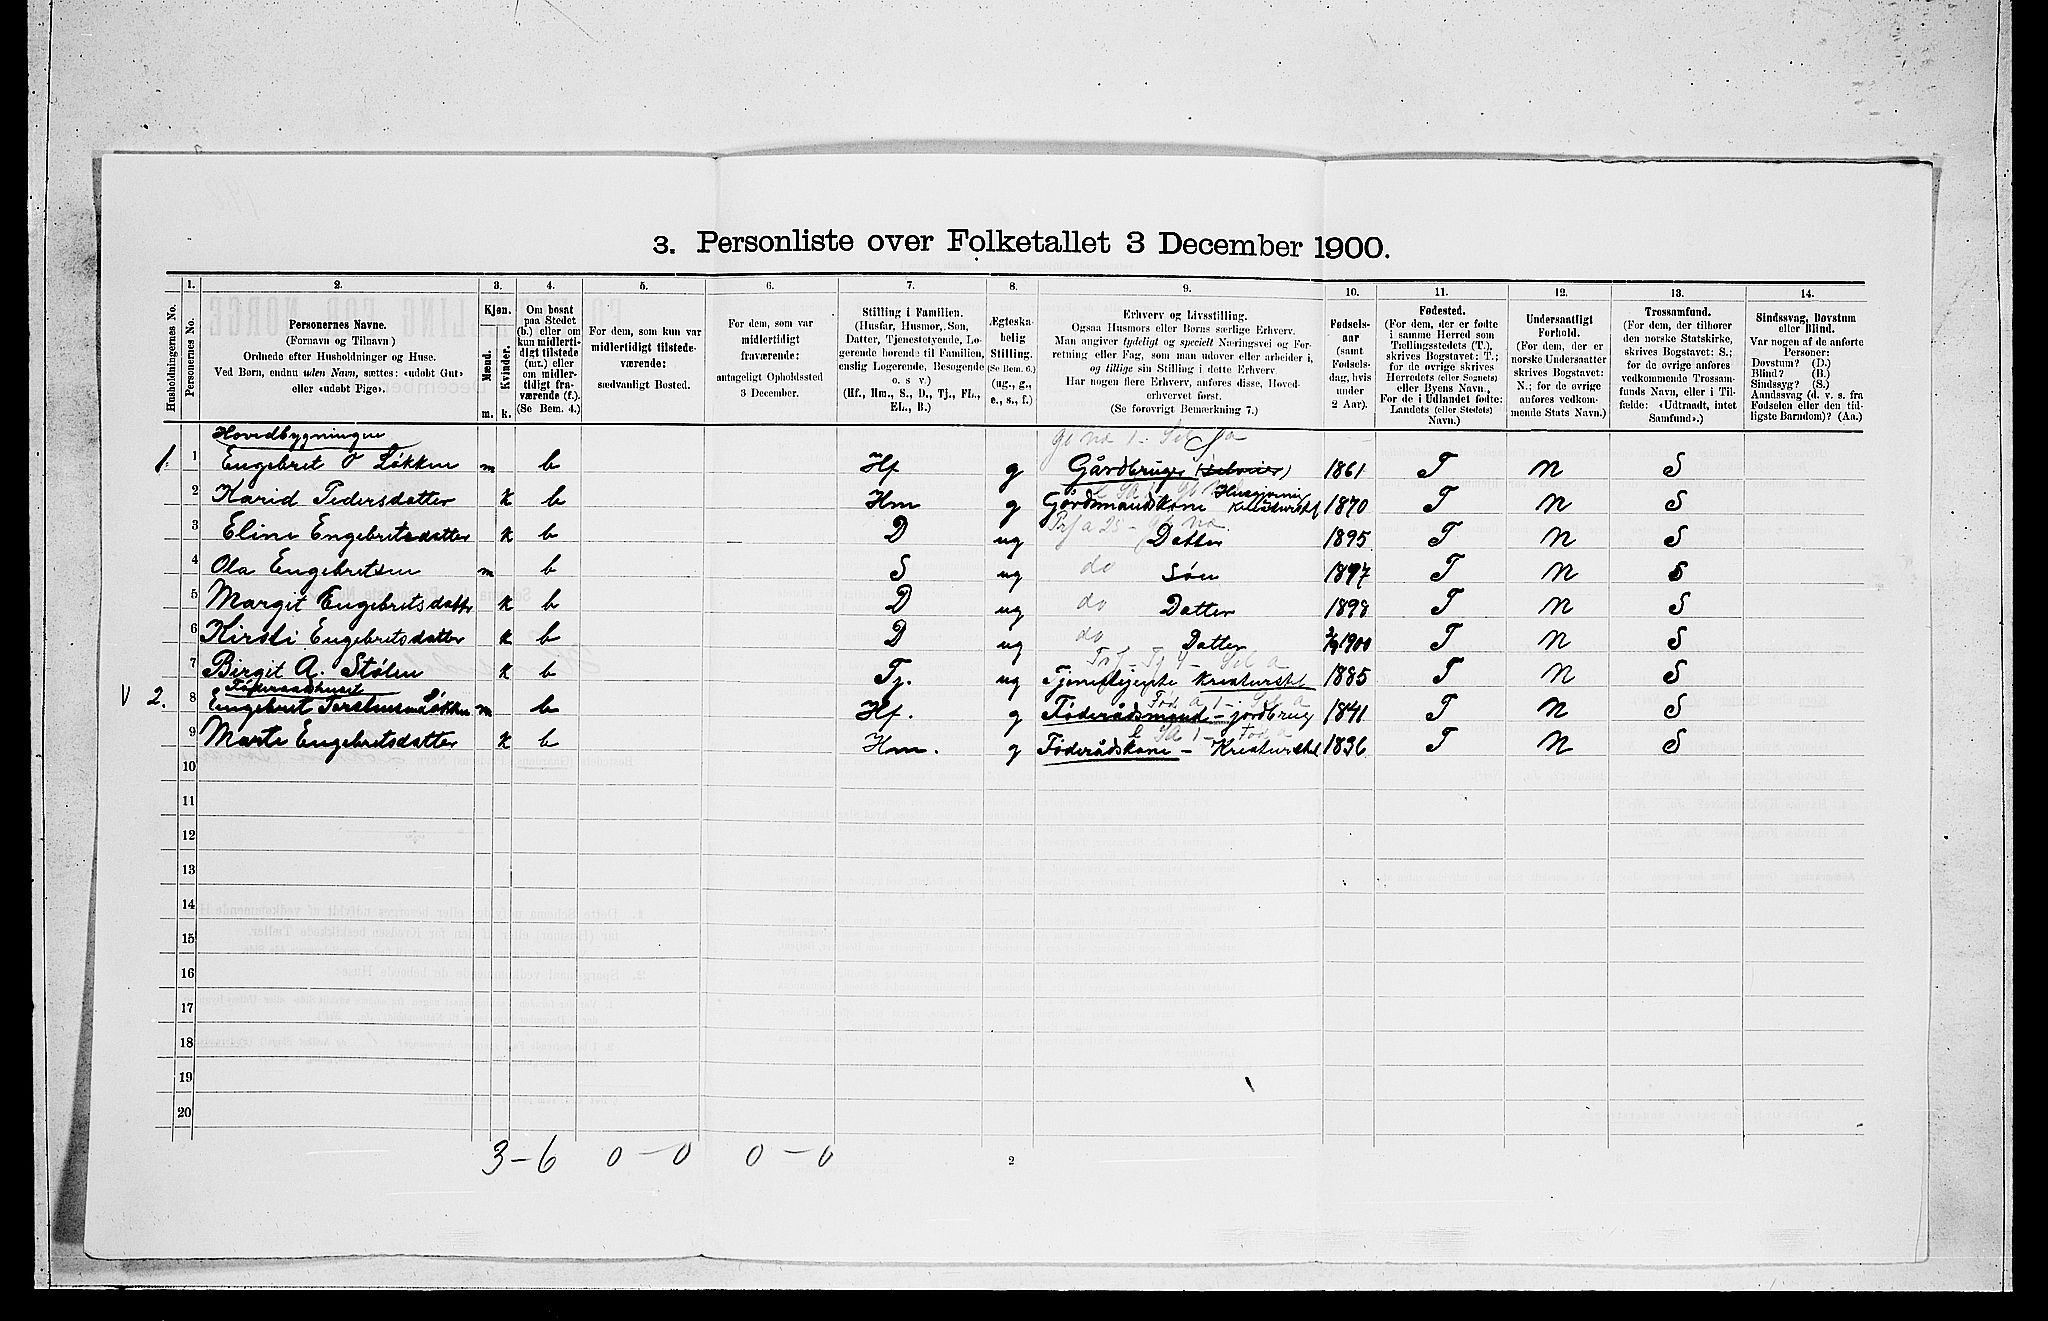 3. Personliste over Folketallet 3 December 1900.
Husholdningernes No.
1.
Personernes No.
2.
Personernes Navne.
(Fornavn og Tilnavn)
Ordnede efter Husholdninger og Huse.
Ved Børn, endnu uden Navn, sættes: «udøbt Gut»
eller «udøbt Pige».
3.
Kjøn.
Mænd.
Kvinder.
m. k.
4.
Om bosat
paa Stedet
(b.) eller om
kun midlerti-
digt tilstede
(mt.) eller
om midler-
tidigt fra-
værende (f.).
(Se Bem. 4.)
5.
For dem, som kun var
midlertidigt tilstede-
værende:
sædvanligt Bosted.
6.
For dem, som var
midlertidigt
fraværende:
antageligt Opholdssted
3 December.
7.
Stilling i Familien.
(Husfar, Husmor, Søn,
Datter, Tjenestetyende, Lo-
gerende hørende til Familien,
enslig Logerende, Besøgende
o. s. v.)
(Hf., Hm., S., D., Tj., FL.,
EL., B.)
8.
Ægteska-
belig
Stilling.
(Se Bem. 6.)
(ug., g.,
e., s., f.)
9.
Erhverv og Livsstilling.
Ogsaa Husmors eller Børns særlige Erhverv.
Man angiver tydeligt og specielt Næringsvei og For-
retning eller Fag, som man udøver eller arbeider i,
og tillige sin Stilling i dette Erhverv.
Har nogen flere Erhverv, anføres disse, Hoved-
erhvervet først.
(Se forøvrigt Bemærkning 7.)
10.
Fødsels-
aar
(samt
Fødsels-
dag, hvis
under
2 Aar).
11.
Fødested.
(For dem, der er fødte
i samme Herred som
Tællingsstedets (T.),
skrives Bogstavet: T.;
for de øvrige skrives
Herredets (eller Sognets)
eller Byens Navn.
For de i Udlandet fødte:
Landets (eller Stedets)
Navn.)
12.
Undersaatligt
Forhold.
(For dem, der er
norske Undersaatter
skrives Bogstavet:
N.; for de øvrige
anføres vedkom-
mende Stats Navn.)
13.
Trossamfund.
(For dem, der tilhører
den norske Statskirke,
skrives Bogstavet: S.;
for de øvrige anføres
vedkommende Trossam-
funds Navn, eller i Til-
fælde: «Udtraadt, intet
Samfund».)
14.
Sindssvag, Døvstum
eller Blind.
Var nogen af de anførte
Personer:
Døvstum? (D.)
Blind? (B.)
Sindssyg? (S.)
Aandssvag (d. v. s. fra
Fødselen eller den tid-
ligste Barndom)? (Aa.)
Hovedbygningen
1. 1 Engebret O Løkken m b Hf g Gårdbruger 1861 T N S
2 Karid Pedersdatter k b Hm g Gårdmandskone Husgjerning Kreaturstel 1870 T N S
3 Eline Engebretsdatter k b D ug Datter 1895 T N S
4 Ola Engebretsen m b S ug do Søn 1897 T N S
5 Margit Engebretsdatter k b D ug do Datter 1898 T N S
6 Kirsti Engebretsdatter k b D ug do Datter 1900 T N S
7 Birgit A. Stølen k b Tj. ug Tjenestejente Kreaturstel 1885 T N S
Føderaadshuset
V 2. 8 Engebret Torstensen Løkken m b Hf. g Føderådsmand - jordbrug 1841 T N S
9 Marte Engebretsdatter k b Hm. g Føderådskone - Kreaturstel 1836 T N S
10
11
12
13
14
15
16
17
18
19
20
3-6 0-0 0-0
2